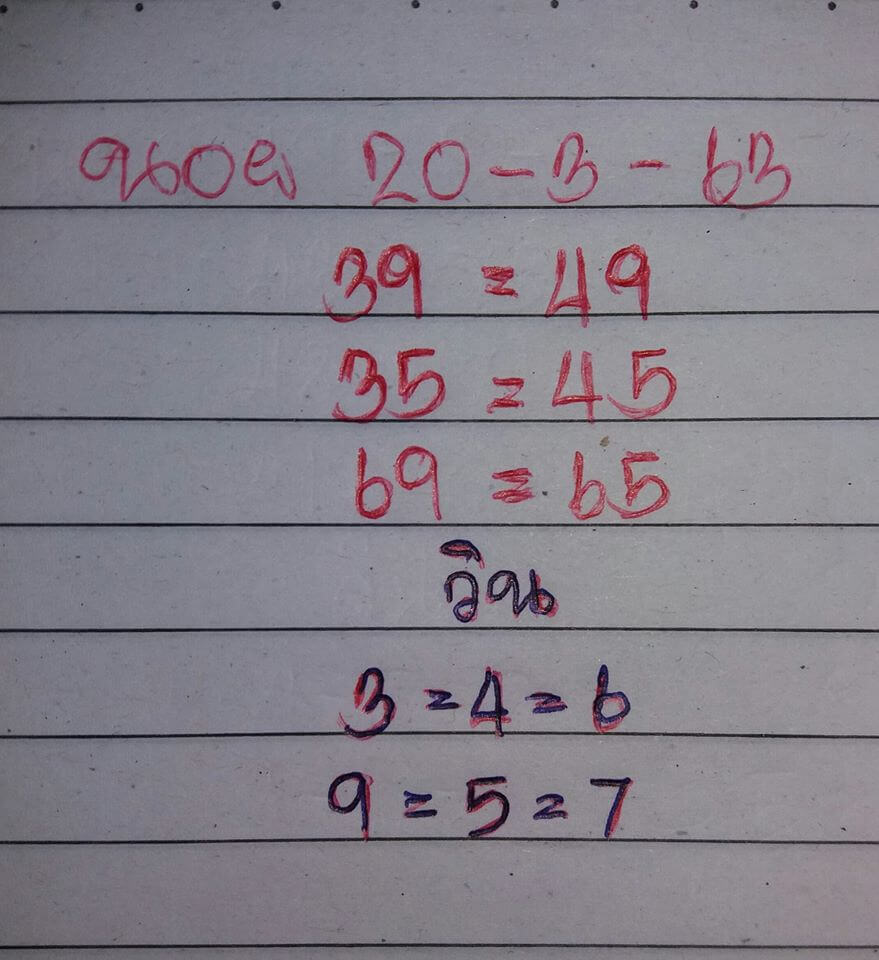 ฮานอย 20-3-63
39 = 49
35 = 45
69 = 65
วิน
3 = 4 = 6
9 = 5 = 7